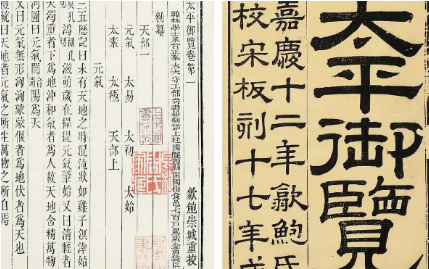 太平御覽
嘉慶十二年歙鮑氏
校宋板刻十七年成
太平御覽卷第一
歙鮑崇城重校
天部一
元氣 太易 太初 太始
太素 太極 天部上
元氣
三五歷記曰未有天地之時混沌狀如雞子溟涬始
歲在攝提元氣肇始又曰清輕者
濁重者下為地沖和氣者為人故天地含精萬物
河圖曰元氣闓陽為天
又曰元氣無形洶洶蒙蒙偃者為地伏者為天也
禮統曰天地者元氣之所生萬物之所自焉